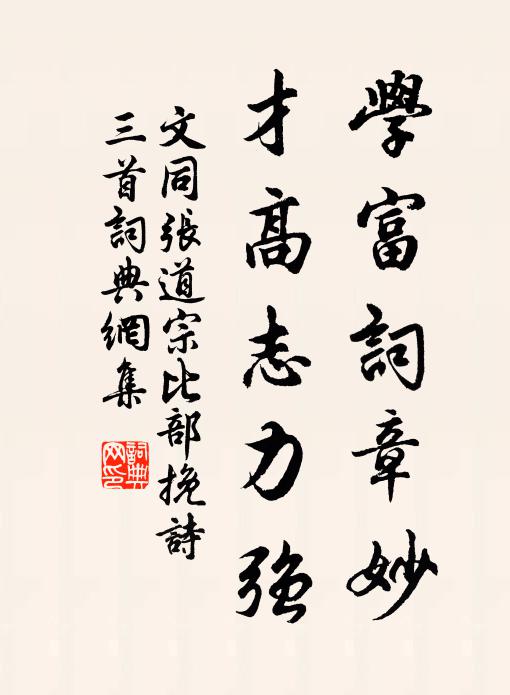 學富詞章妙
才高志力強
文同張道宗比部挽詩
三首詞典網集
詞典
网印